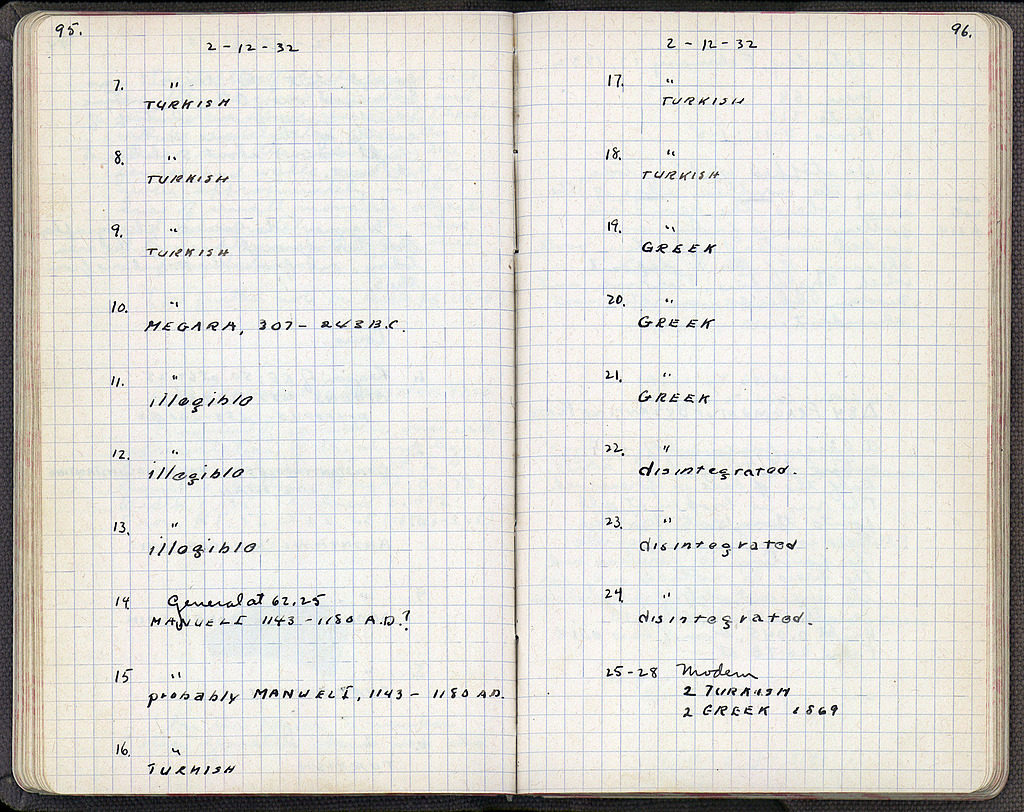 95.
2-12-32
7. "
TURKISH
8. "
TURKISH
9. "
TURKISH
10. "
MEGARA, 307- 243 B.C.
11. "
illegible
12. "
illegible
13. "
illegible
14 General at 62,25
MANUEL I 1143 -1180 A.D.?
15 "
probably MANUEL I, 1143 - 1180 A.D.
16. "
TURKISH
96.
2-12-32
17. "
TURKISH
18. "
TURKISH
19. "
GREEK
20. "
GREEK
21. "
GREEK
22. "
disintegrated.
23. "
disintegrated
24. "
disintegrated.
25-28 Modern
2 TURKISH
2 GREEK 1869